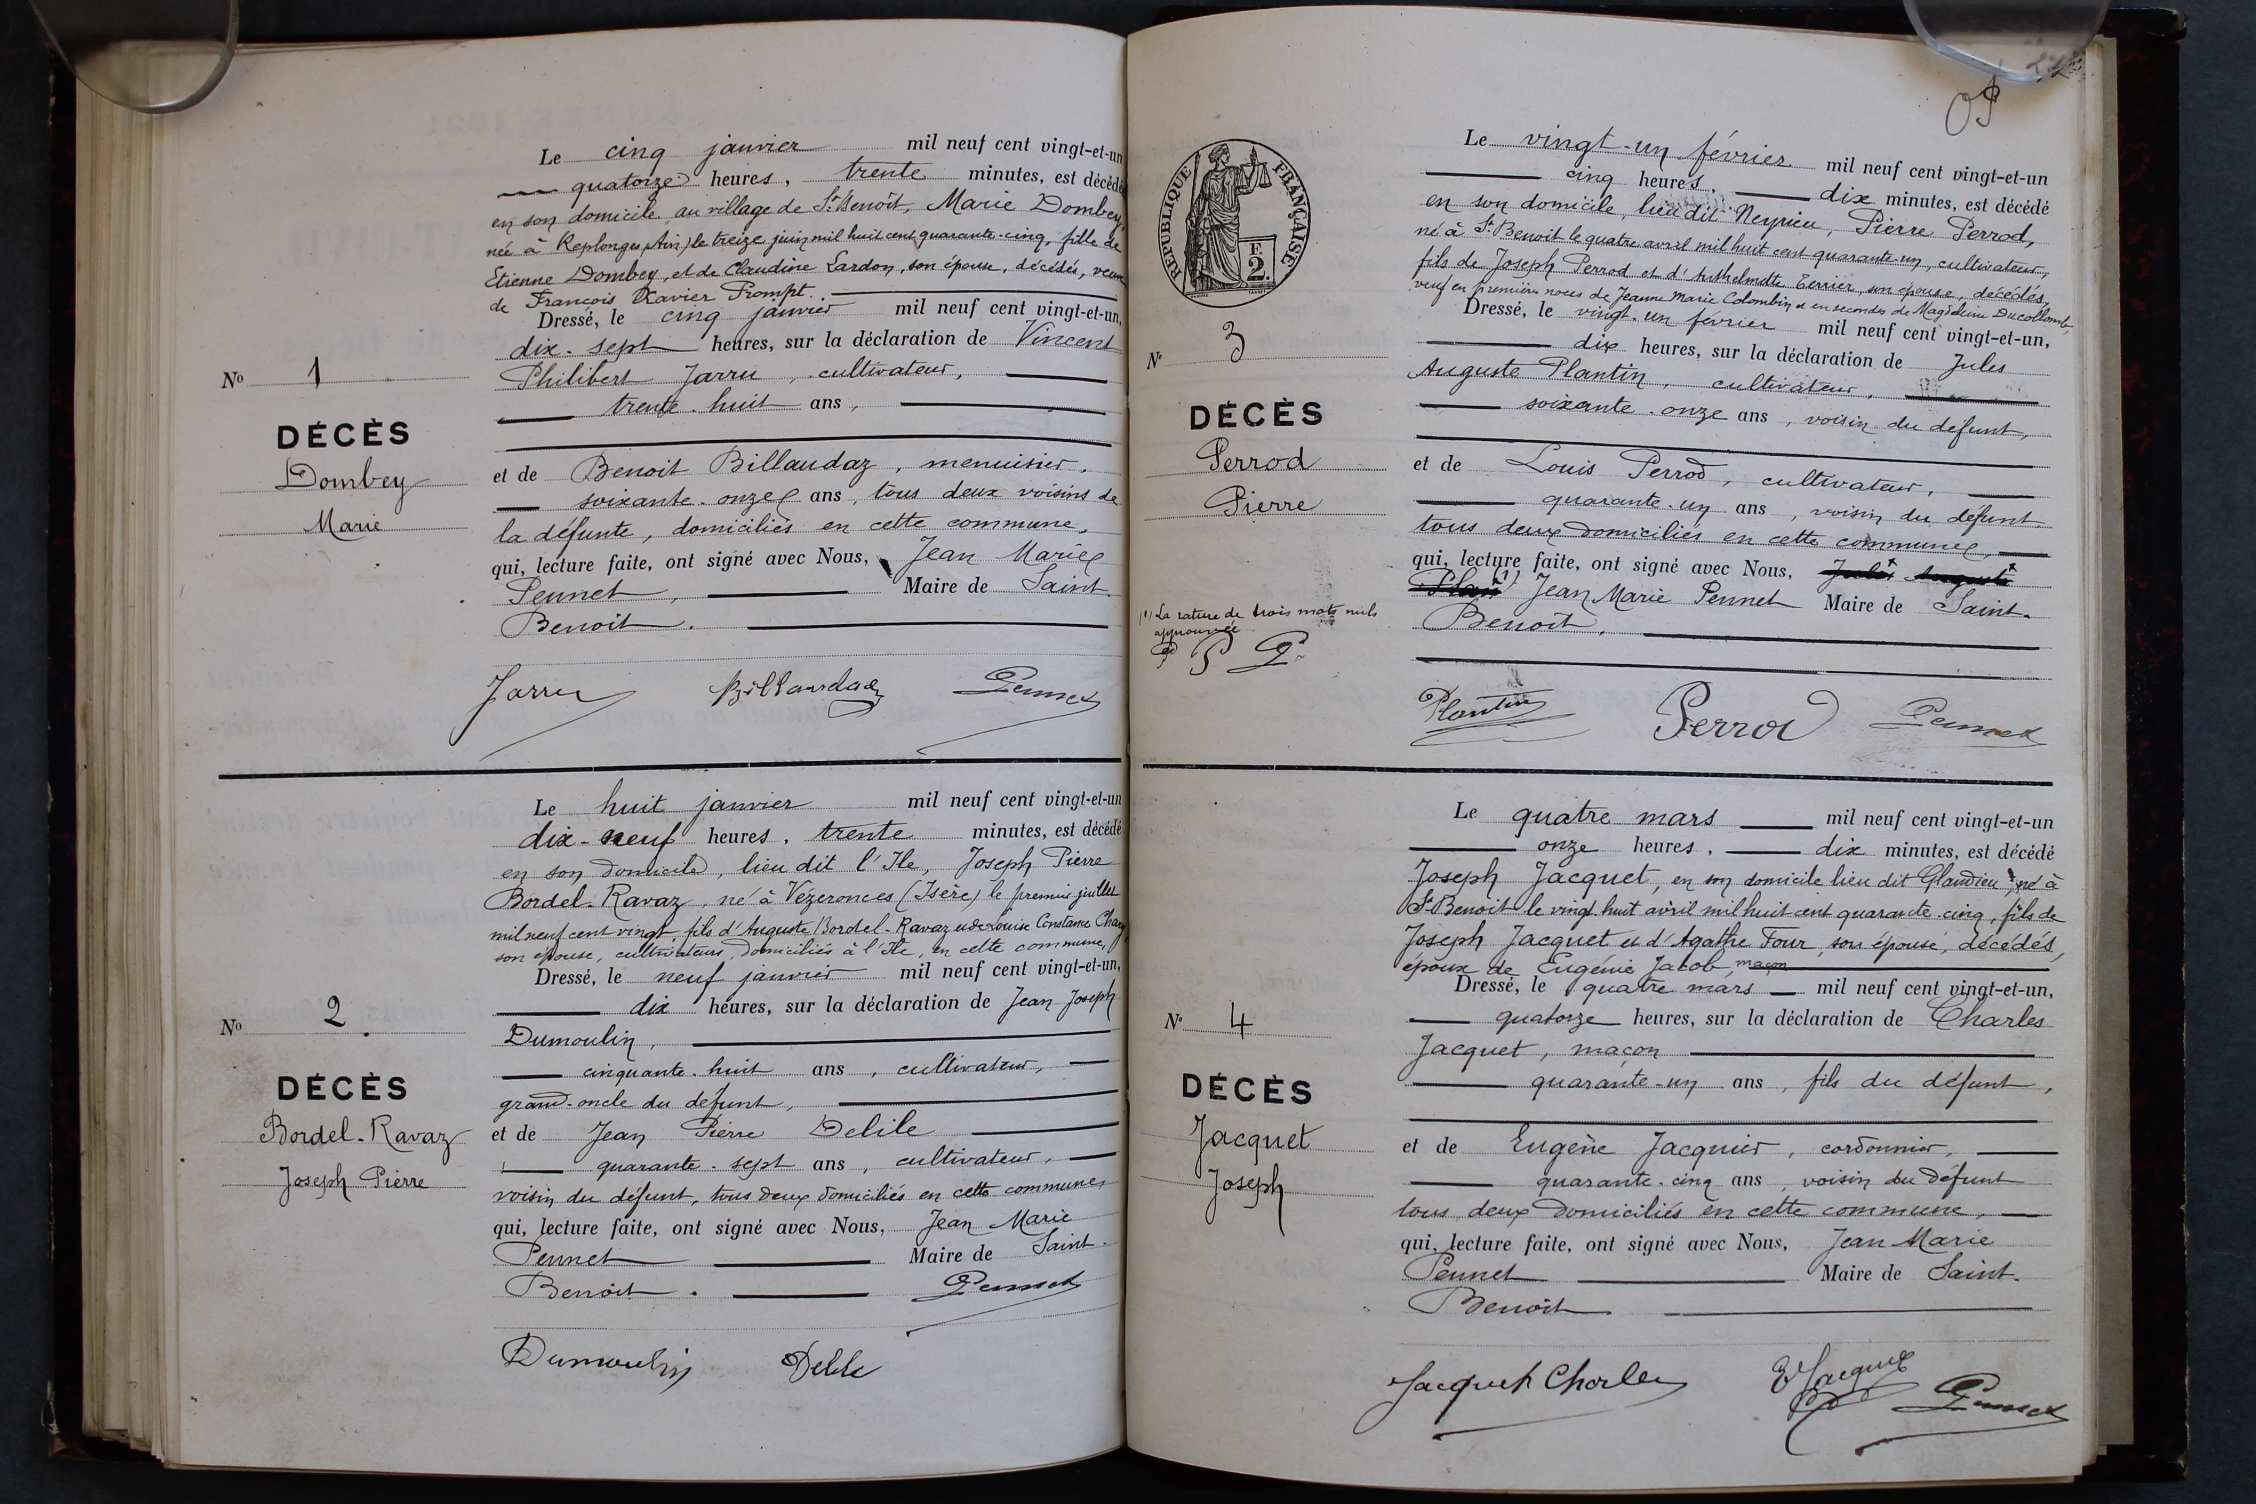 Le cinq janvier mil neuf cent vingt-et-un
quatorze heures, trente minutes, est décédé
en son domicile au village de St Benoît, Marie Dombey,
née à Replonges (Ain) le treize juin mil huit cent quarante-cinq, fille de
Etienne Dombey, et de Claudine Lardon, son épouse, décédés, veuve
de François Xavier Prompt.
Dressé, le cinq janvier mil neuf cent vingt-et-un,
dix-sept heures, sur la déclaration de Vincent
Philibert Jarru, cultivateur,
trente-huit ans,
et de Benoit Billaudaz, menuisier,
soixante-onze ans, tous deux voisins de
la défunte, domiciliés en cette commune,
qui, lecture faite, ont signé avec Nous, Jean Marie
Pennet, Maire de Saint-
Benoît.
Nº 1
DÉCÈS
Dombey
Marie
Jarru Billaudaz Pennet
Le huit janvier mil neuf cent vingt-et-un
dix-neuf heures, trente minutes, est décédé
en son domicile, lieu dit l'Ile, Joseph Pierre
Bordel-Ravaz, né à Vézeronces (Isère) le premier juillet
mil neuf cent vingt, fils d'Auguste Bordel-Ravaz et de Louise Constance
son épouse, cultivateurs, domiciliés à l'Ile, en cette commune,
Dressé, le neuf janvier mil neuf cent vingt-et-un,
dix heures, sur la déclaration de Jean Joseph
Dumoulin,
cinquante-huit ans, cultivateur,
grand-oncle du défunt,
et de Jean Pierre Delile
quarante-sept ans, cultivateur,
voisin du défunt, tous deux domiciliés en cette commune,
qui, lecture faite, ont signé avec Nous, Jean Marie
Pennet Maire de Saint-
Benoît. Pennet
Nº 2.
DÉCÈS
Bordel-Ravaz
Joseph Pierre
Dumoulin Delile
RÉPUBLIQUE FRANÇAISE
F.
2.
Le vingt-un février mil neuf cent vingt-et-un
cinq heures, dix minutes, est décédé
en son domicile, lieu dit Neyrieu, Pierre Perrod,
né à St Benoit le quatre avril mil huit cent quarante-un, cultivateur,
fils de Joseph Perrod et d'Anthelmette Terrier, son épouse, décédés,
veuf en premières noces de Jeanne Marie Colombin et en secondes de Magdeleine Ducollomb,
Dressé, le vingt-un février mil neuf cent vingt-et-un,
dix heures, sur la déclaration de Jules
Auguste Plantin, cultivateur,
soixante-onze ans, voisin du défunt,
et de Louis Perrod, cultivateur,
quarante-un ans, voisin du défunt
tous deux domiciliés en cette commune,
qui, lecture faite, ont signé avec Nous, Jules Auguste
Plan (1) Jean Marie Pennet Maire de Saint-
Benoît.
Nº 3
DÉCÈS
Perrod
Pierre
(1) La rature de trois mots nuls
approuvée
P P P
Plantin Perrod Pennet
Le quatre mars mil neuf cent vingt-et-un
onze heures, dix minutes, est décédé
Joseph Jacquet, en son domicile lieu dit Glandieu, né à
St Benoit le vingt huit avril mil huit cent quarante-cinq, fils de
Joseph Jacquet et d'Agathe Four, son épouse, décédés,
époux de Eugénie Jacob, maçon
Dressé, le quatre mars mil neuf cent vingt-et-un,
quatorze heures, sur la déclaration de Charles
Jacquet, maçon
quarante-un ans, fils du défunt,
et de Eugène Jacquier, cordonnier,
quarante-cinq ans, voisin du défunt
tous deux domiciliés en cette commune,
qui, lecture faite, ont signé avec Nous, Jean Marie
Pennet Maire de Saint-
Benoît.
Nº 4
DÉCÈS
Jacquet
Joseph
Jacquet Charles E Jacquier Pennet